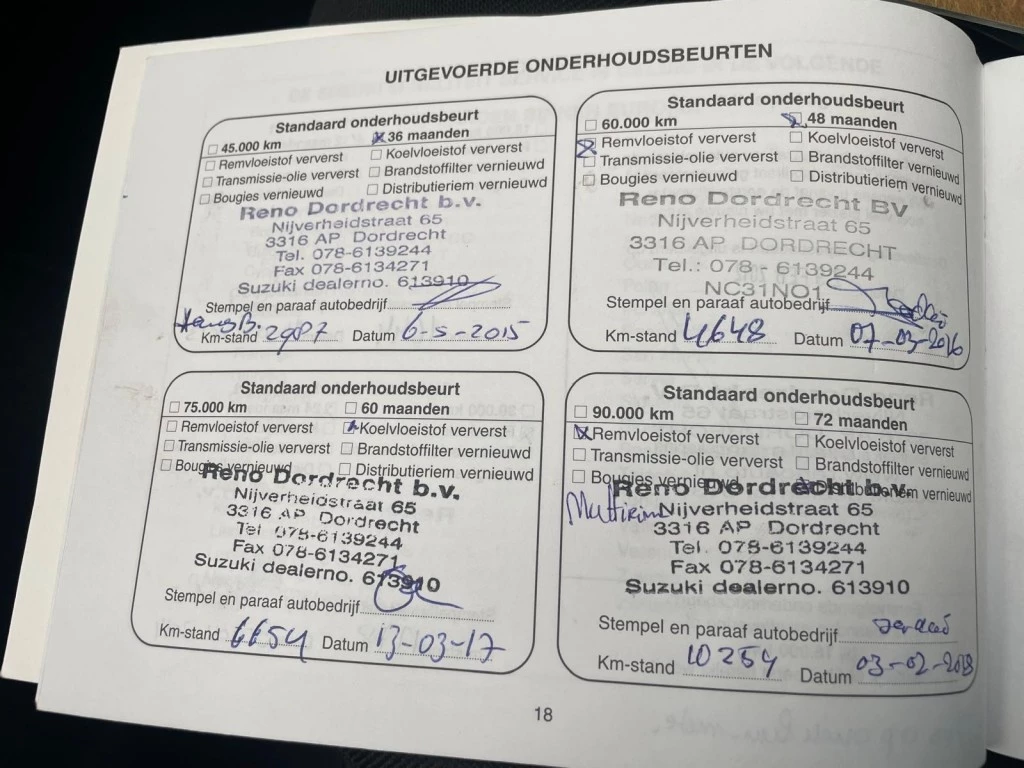 UITGEVOERDE ONDERHOUDSBEURTEN
Standaard onderhoudsbeurt
45.000 km 36 maanden
Remvloeistof ververst Koelvloeistof ververst
Transmissie-olie ververst Brandstoffilter vernieuwd
Bougies vernieuwd Distributieriem vernieuwd
Reno Dordrecht b.v.
Nijverheidstraat 65
3316 AP Dordrecht
Tel. 078-6139244
Fax 078-6134271
Suzuki dealerno. 613910
Stempel en paraaf autobedrijf
Km-stand 2987 Datum 6-5-2015
Standaard onderhoudsbeurt
60.000 km 48 maanden
Remvloeistof ververst Koelvloeistof ververst
Transmissie-olie ververst Brandstoffilter vernieuwd
Bougies vernieuwd Distributieriem vernieuwd
Reno Dordrecht BV
Nijverheidstraat 65
3316 AP DORDRECHT
Tel.: 078 - 6139244
NC31NO1
Stempel en paraaf autobedrijf
Km-stand 4648 Datum 07-03-2016
Standaard onderhoudsbeurt
75.000 km 60 maanden
Remvloeistof ververst Koelvloeistof ververst
Transmissie-olie ververst Brandstoffilter vernieuwd
Bougies vernieuwd Distributieriem vernieuwd
Reno Dordrecht b.v.
Nijverheidstraat 65
3316 AP Dordrecht
Tel 078-6139244
Fax 078-6134271
Suzuki dealerno. 613910
Stempel en paraaf autobedrijf
Km-stand 6654 Datum 13-03-17
Standaard onderhoudsbeurt
90.000 km 72 maanden
Remvloeistof ververst Koelvloeistof ververst
Transmissie-olie ververst Brandstoffilter vernieuwd
Bougies vernieuwd Distributieriem vernieuwd
Reno Dordrecht b.v.
Nijverheidstraat 65
3316 AP Dordrecht
Tel. 078-6139244
Fax 078-6134271
Suzuki dealerno. 613910
Stempel en paraaf autobedrijf
Km-stand 10254 Datum 03-02-2018
18